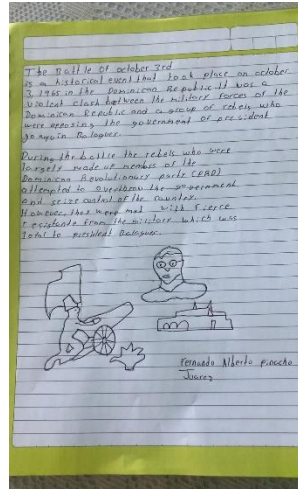 The Battle Of october 3rd
is a historical event that took place on october
3, 1965 in the Dominican Republic. It was a
violent clash between the military forces of the
Dominican Republic and a group of rebels who
were opposing the government of president
Joaquin Balaguer.
During the battle the rebels who were
largely made of members of the
Dominican Revolutionary party (PRD)
attempted to overthrow the government
and seize control of the country.
However, they were met with fierce
resistance from the military which was
loyal to president Balaguer.
Fernando Alberto Pinacho
Juarez